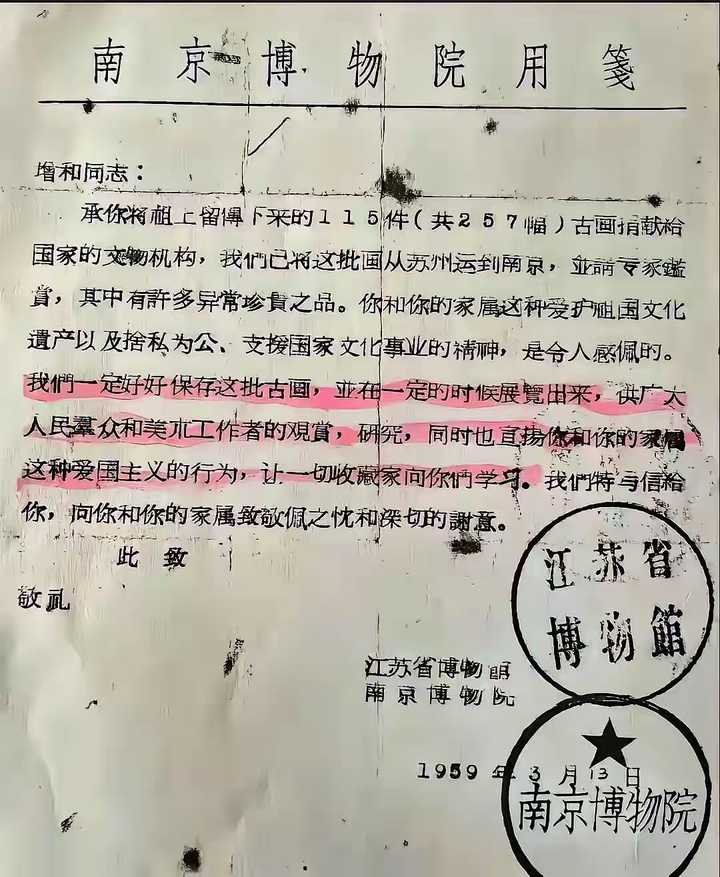 南京博物院用箋
增和同志：
承你将祖上留傳下来的115件(共257幅)古画捐献給
国家的文物机构，我們已将这批画从苏州运到南京，並請专家鑑
賞，其中有許多异常珍貴之品。你和你的家属这种爱护祖国文化
遺产以及捨私为公、支援国家文化事业的精神，是令人感佩的。
我們一定好好保存这批古画，並在一定的时候展覽出来，供广大
人民羣众和美朮工作者的观賞，研究，同时也宣揚你和你的家属
这种爱国主义的行为，让一切收藏家向你們学习。我們特与信給
你，向你和你的家属致敬佩之忱和深切的謝意。
此致
敬礼
江苏省博物館
南京博物院
1959年3月13日
江苏省
博物館
南京博物院